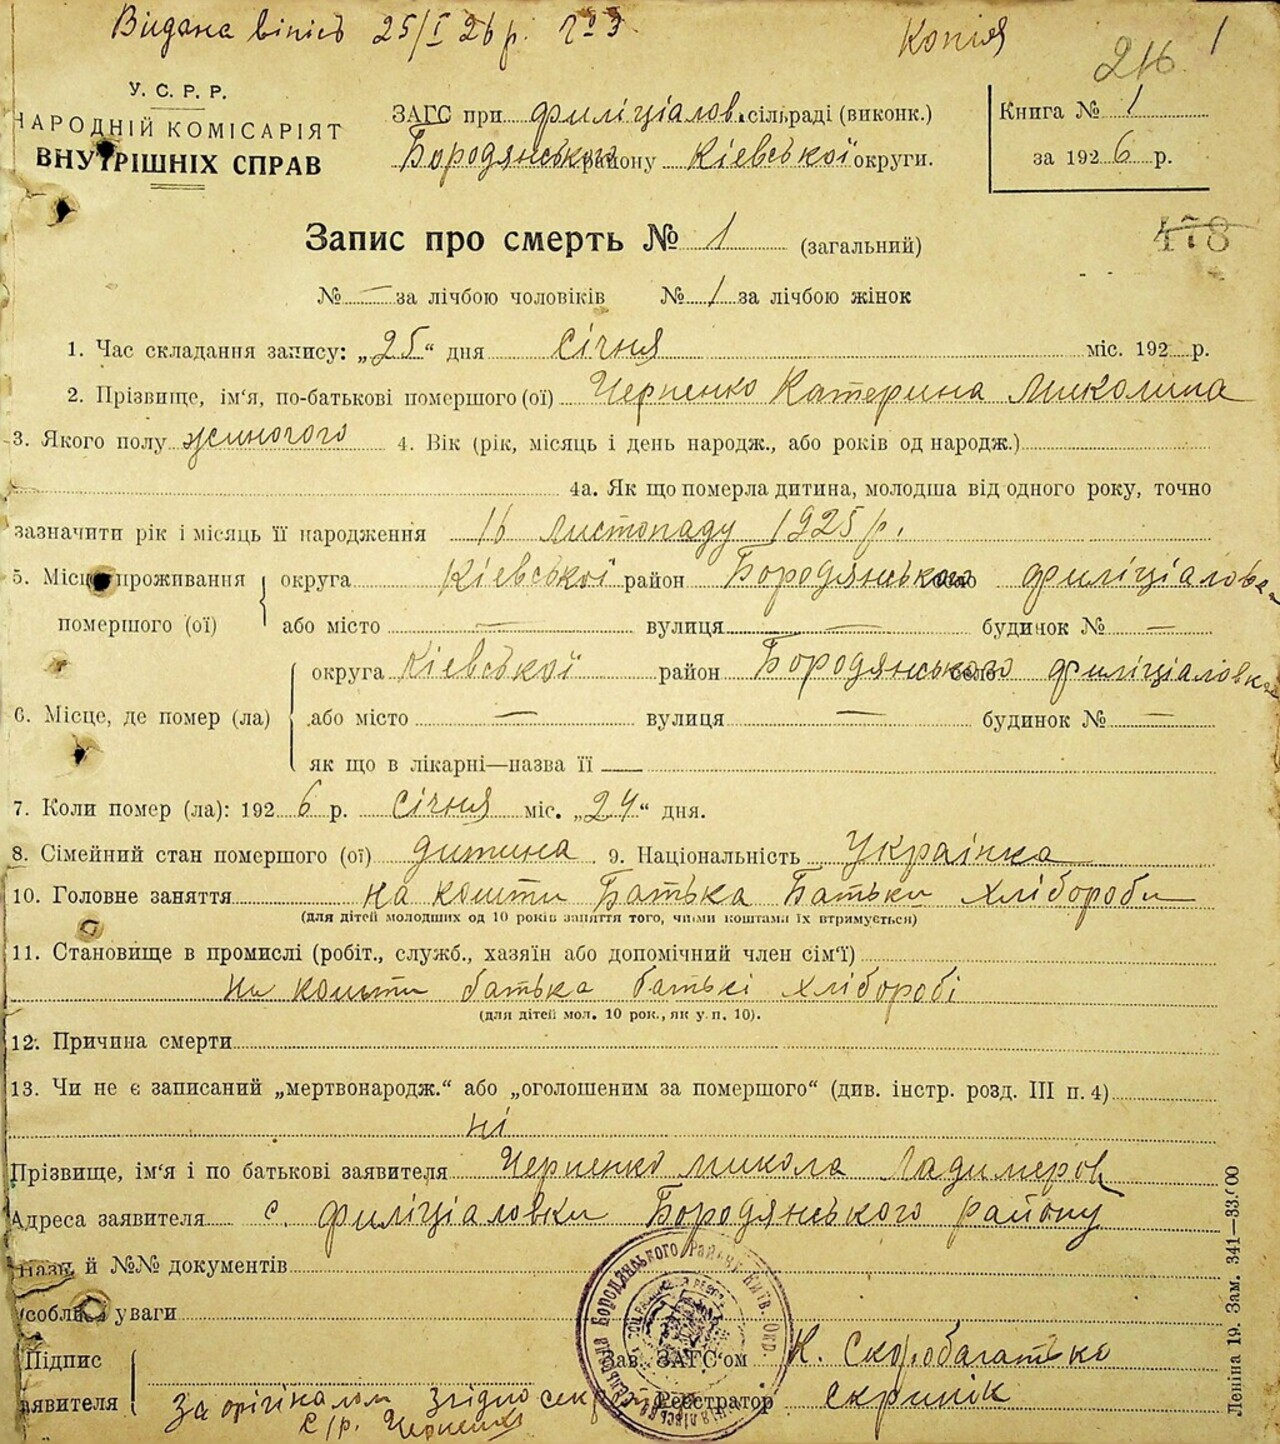 Видана випісь 25/I 26 р. № 3.
Копія
216 1
У. С. Р. Р.
НАРОДНІЙ КОМІСАРІЯТ
ВНУТРІШНІХ СПРАВ
ЗАГС при филіціалов. сільраді (виконк.)
Бородянського району Кіевської округи.
Книга № 1
за 1926 р.
Запис про смерть № 1 (загальний)
478
№ — за лічбою чоловіків № 1 за лічбою жінок
1. Час складання запису: „25“ дня Січня міс. 192 р.
2. Прізвище, ім‘я, по-батькові помершого (ої) Черненко Катерина Миколина
3. Якого полу жиночого 4. Вік (рік, місяць і день народж., або років од народж.)
4а. Як що померла дитина, молодша від одного року, точно
зазначити рік і місяць її народження 16 Листопаду 1925 р.
5. Місце проживання помершого (ої) округа Кіевської район Бородянського село филіціаловка
або місто — вулиця — будинок № —
6. Місце, де помер (ла) округа Кіевської район Бородянського село филіціаловка
або місто — вулиця — будинок № —
як що в лікарні—назва її —
7. Коли помер (ла): 1926 р. Січня міс. „24“ дня.
8. Сімейний стан помершого (ої) дитина 9. Національність Українка
10. Головне заняття на кошти Батька Батьки хлібороби
(для дітей молодших од 10 років заняття того, чиїми коштами їх втримується)
11. Становище в промислі (робіт., служб., хазяїн або допомічний член сім‘ї)
на кошти батька батькі хлібороbі
(для дітей мол. 10 рок., як у п. 10).
12. Причина смерти
13. Чи не є записаний „мертвонародж.“ або „оголошеним за помершого“ (див. інстр. розд. III п. 4)
ні
Прізвище, ім‘я і по батькові заявителя Черненко Микола Ладимеров
Адреса заявителя с. филіціаловки Бородянського району
Назв. й №№ документів
Особливі уваги
Підпис заявителя
Зав. ЗАГС‘ом К. Скоробагатько
Реєстратор Скрипік
За орігіналом Згідно секретар
С/р. Черненко
Бородянського Району Київ. Окр.
Леніна 19. Зам. 341—33.000